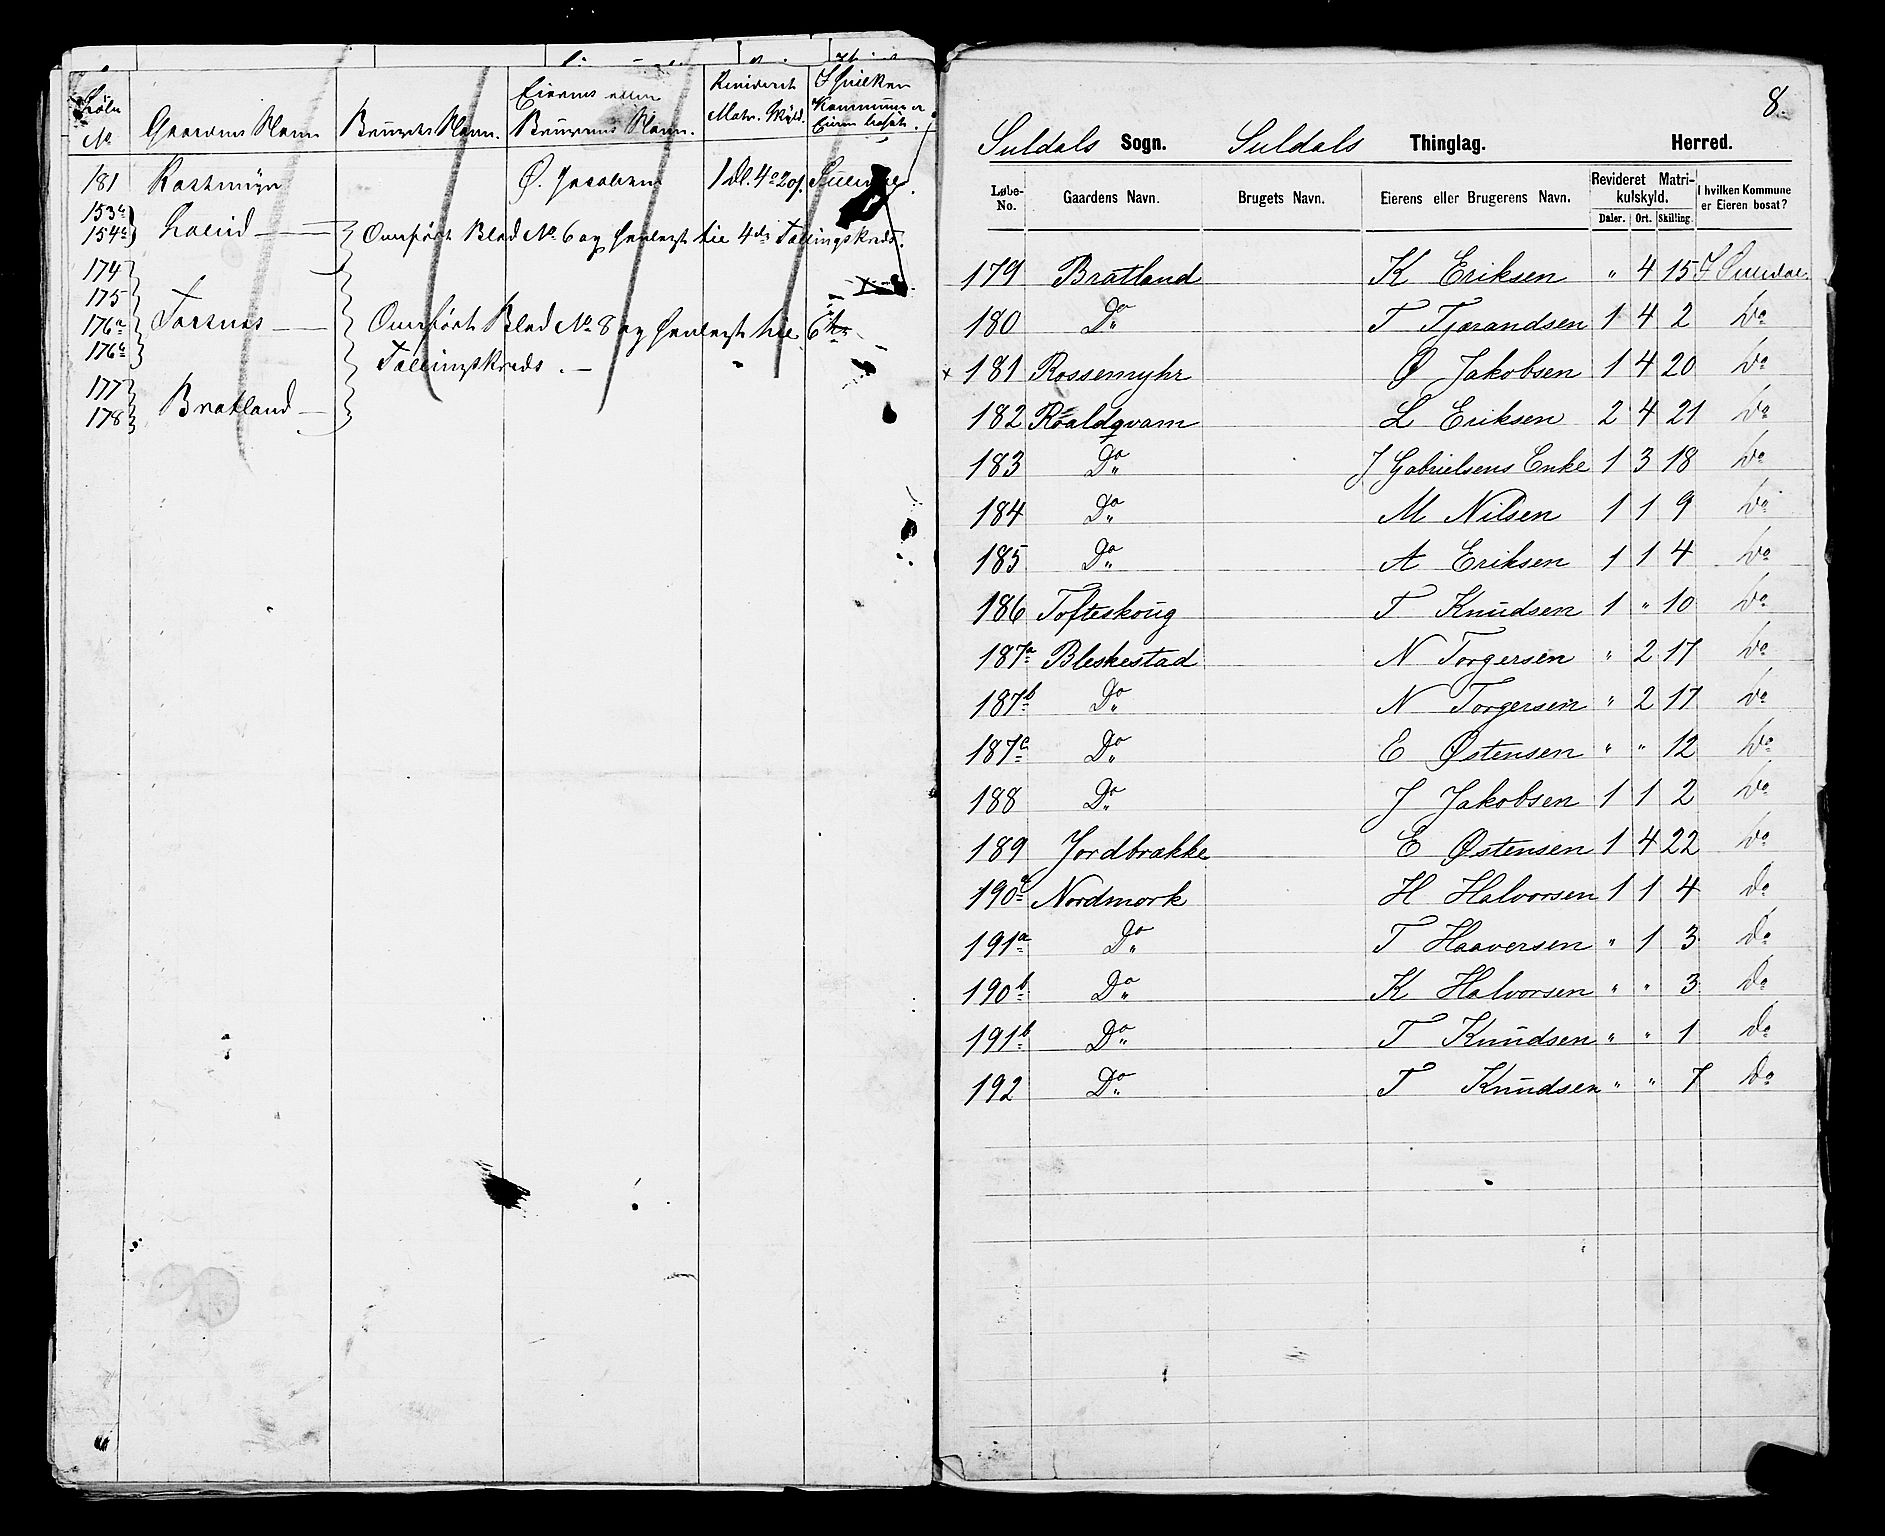 Löbe No Gaardens Navn Brugets Navn. Eierens eller Brugerens Navn. Revideret Matr. Skyld. I hvilken Kommune er Eieren bosat.
181 Ø. Jacobsen 1 dl. 4 o 20 s. Suldal.
153 c
154 c Omført Blad No 6 og henlagt til 4de Tællingskreds.
174
175
176 a Omført Blad No 8 og henlagt til 6te
176 c Tællingskreds. —
177
178 Bratland —
8.
Suldals Sogn. Suldals Thinglag. Herred.
Løbe-No. Gaardens Navn. Brugets Navn. Eierens eller Brugerens Navn. Revideret Matrikulskyld. Daler. Ort. Skilling. I hvilken Kommune er Eieren bosat?
179 Bratland K Eriksen " 4 15 I Suldal
180 Do T Tjærandsen 1 4 2 Do
x 181 Rossemyhr Ø Jakobsen 1 4 20 Do
182 Roaldqvam L Eriksen 2 4 21 Do
183 Do J Gabrielsens Enke 1 3 18 Do
184 Do M Nilsen 1 1 9 Do
185 Do A Eriksen 1 1 4 Do
186 Tofteskoug T Knudsen 1 " 10 Do
187a Bleskestad N Torgersen " 2 17 Do
187b Do N Torgersen " 2 17 Do
187c Do E Østensen " " 12 Do
188 Do J Jakobsen 1 1 2 Do
189 Jordbrække E Østensen 1 4 22 Do
190a Nordmork H Halvorsen 1 1 4 do
191a Do T Haaversen " 1 3 do
190b Do K Halvorsen " " 3 do
191b Do T Knudsen " " 1 do
192 Do T Knudsen " " 7 do